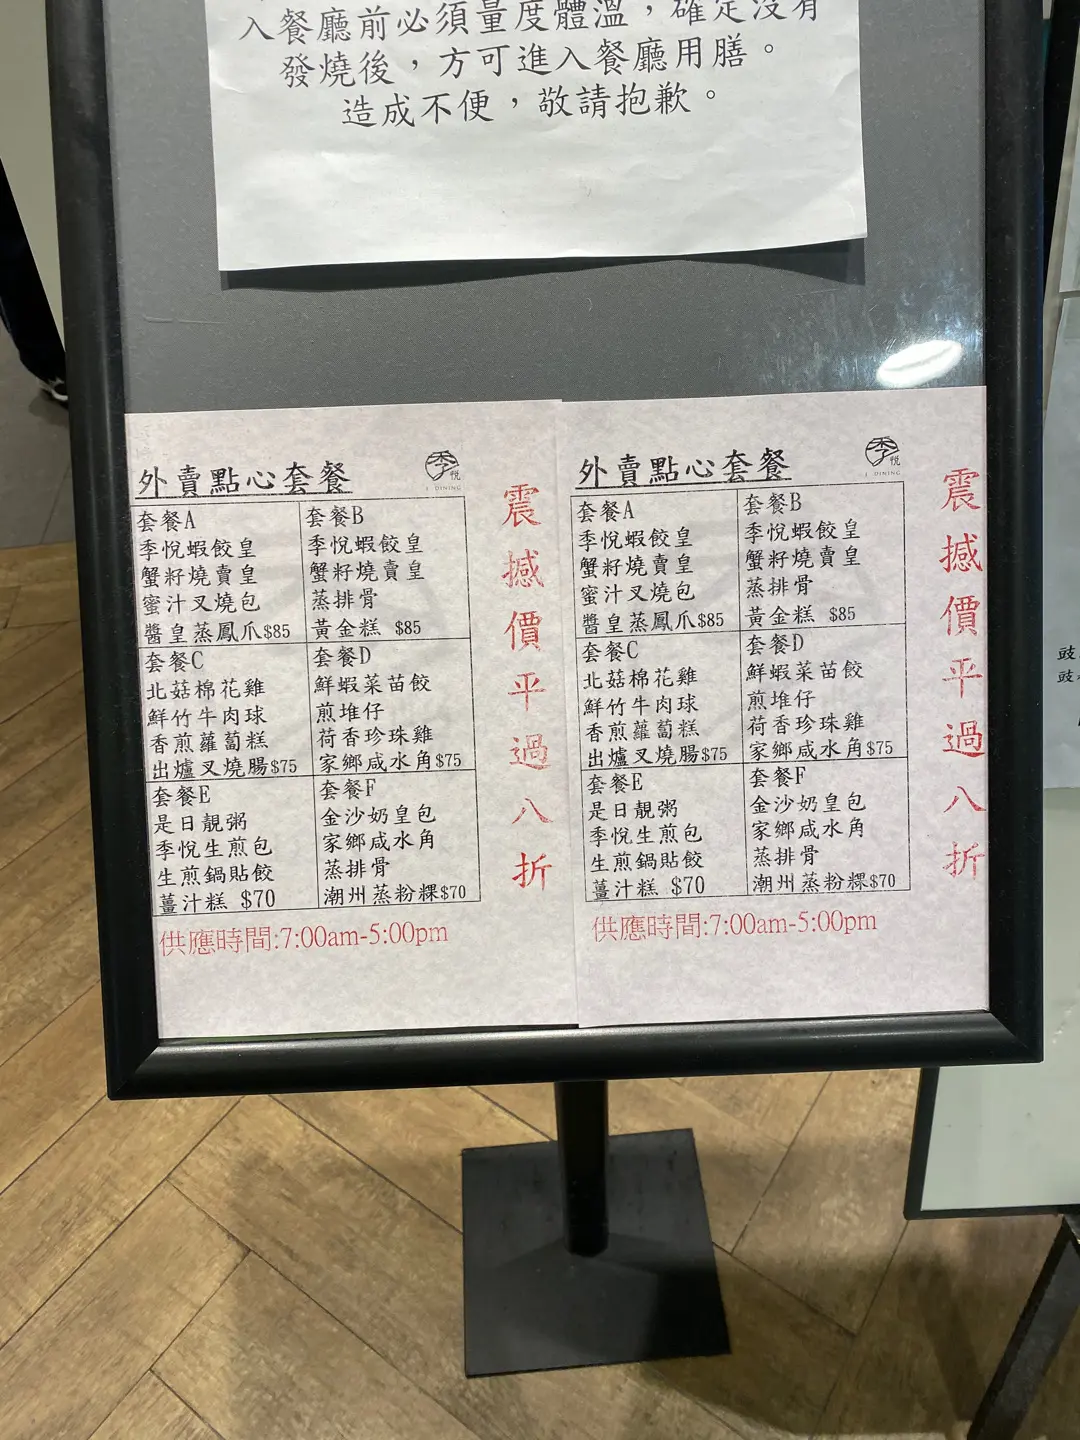 入餐廳前必須量度體溫，確定沒有
發燒後，方可進入餐廳用膳。
造成不便，敬請抱歉。
外賣點心套餐
季悅
I DINING
套餐A
季悅蝦餃皇
蟹籽燒賣皇
蜜汁叉燒包
醬皇蒸鳳爪$85
套餐B
季悅蝦餃皇
蟹籽燒賣皇
蒸排骨
黃金糕 $85
套餐C
北菇棉花雞
鮮竹牛肉球
香煎蘿蔔糕
出爐叉燒腸$75
套餐D
鮮蝦菜苗餃
煎堆仔
荷香珍珠雞
家鄉咸水角$75
套餐E
是日靚粥
季悅生煎包
生煎鍋貼餃
薑汁糕 $70
套餐F
金沙奶皇包
家鄉咸水角
蒸排骨
潮州蒸粉粿$70
供應時間:7:00am-5:00pm
震撼價平過八折
外賣點心套餐
季悅
I DINING
套餐A
季悅蝦餃皇
蟹籽燒賣皇
蜜汁叉燒包
醬皇蒸鳳爪$85
套餐B
季悅蝦餃皇
蟹籽燒賣皇
蒸排骨
黃金糕 $85
套餐C
北菇棉花雞
鮮竹牛肉球
香煎蘿蔔糕
出爐叉燒腸$75
套餐D
鮮蝦菜苗餃
煎堆仔
荷香珍珠雞
家鄉咸水角$75
套餐E
是日靚粥
季悅生煎包
生煎鍋貼餃
薑汁糕 $70
套餐F
金沙奶皇包
家鄉咸水角
蒸排骨
潮州蒸粉粿$70
供應時間:7:00am-5:00pm
震撼價平過八折
豉
豉